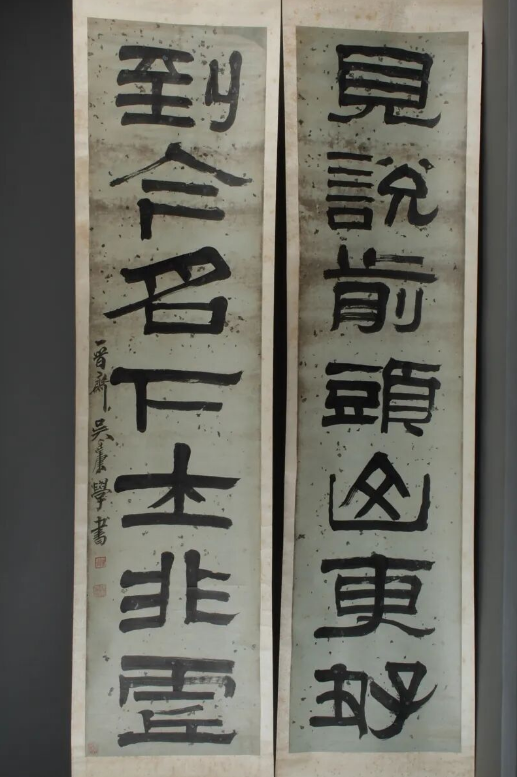 見說前頭山更好
到今名下士非虛
晉齋吳康學書